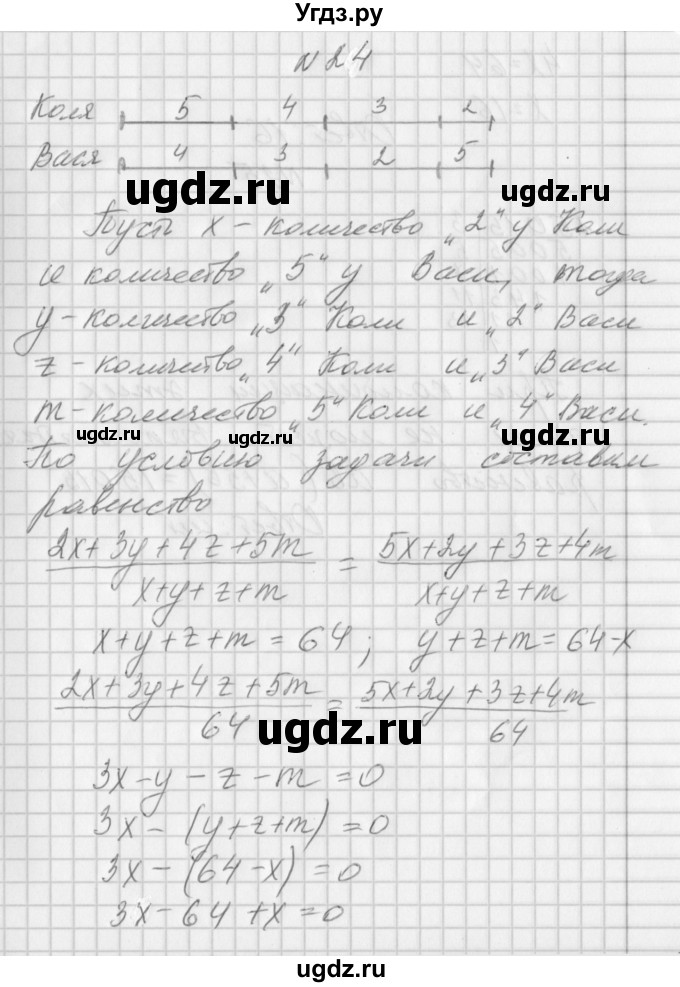 Угдз.ру
№ 24
Коля 5 4 3 2
Вася 4 3 2 5
ugdz.ru ugdz.ru
Пусть x – количество „2“ у Коли
и количество „5“ у Васи, тогда
y – количество „3“ Коли и „2“ Васи
z – количество „4“ Коли и „3“ Васи
m – количество „5“ Коли и „4“ Васи.
ugdz.ru ugdz.ru ugdz.ru
По условию задачи составим
равенство
(2x+3y+4z+5m)/(x+y+z+m) = (5x+2y+3z+4m)/(x+y+z+m)
x+y+z+m = 64; y+z+m = 64-x
(2x+3y+4z+5m)/64 = (5x+2y+3z+4m)/64
ugdz.ru ugdz.ru
3x-y-z-m = 0
3x-(y+z+m) = 0
3x-(64-x) = 0
3x-64+x = 0
ugdz.ru